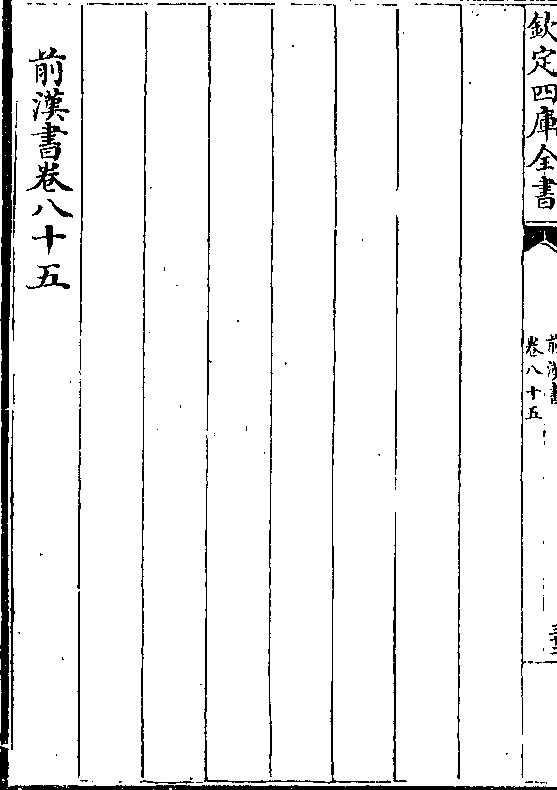 欽定四庫全書
前漢書
卷八十五
前漢書卷八十五